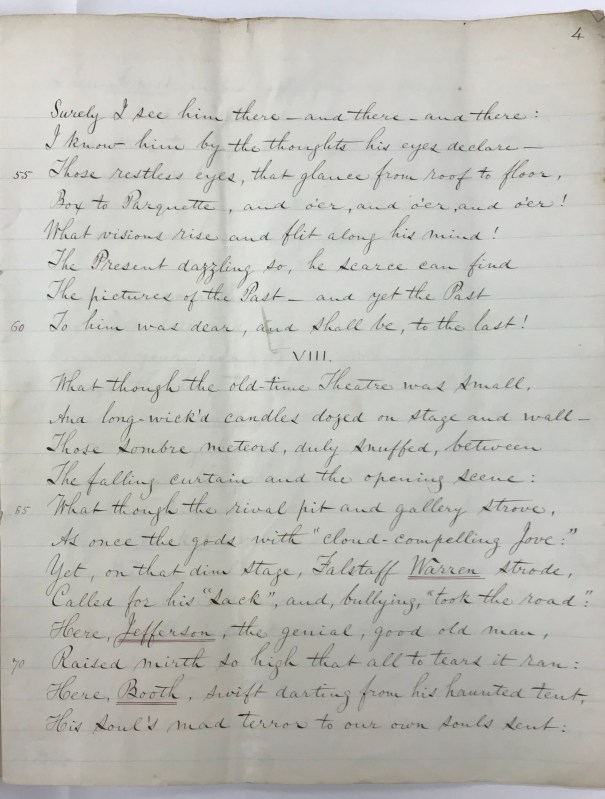 4
Surely I see him there – and there – and there:
I know him by the thoughts his eyes declare –
55 Those restless eyes, that glance from roof to floor,
Box to Parquette, and o'er, and o'er, and o'er!
What visions rise and flit along his mind!
The Present dazzling so, he scarce can find
The pictures of the Past – and yet the Past
60 To him was dear, and shall be, to the last!
VIII.
What though the old-time Theatre was small,
And long-wick'd candles dozed on stage and wall –
Those sombre meteors, duly snuffed, between
The falling curtain and the opening scene:
65 What though the rival pit and gallery strove,
As once the gods with "cloud-compelling Jove:"
Yet, on that dim stage, Falstaff Warren strode,
Called for his "Sack", and, bullying, "took the road":
Here, Jefferson, the genial, good old man,
70 Raised mirth so high that all to tears it ran:
Here, Booth, swift darting from his haunted tent,
His soul's mad terror to our own souls sent: